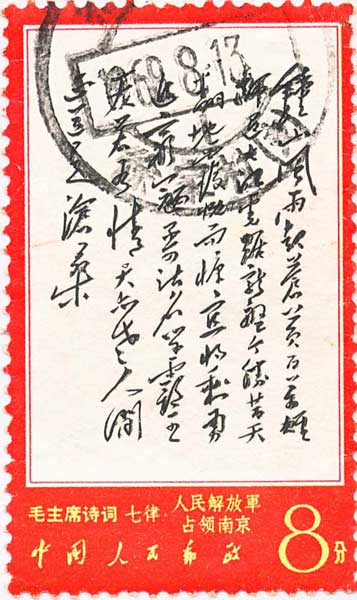 1968.8.13
鍾山风雨起蒼黄百万雄
师过大江虎踞龙盘今勝昔天
翻地覆慨而慷宜将剩勇
追穷寇不可沽名学霸王
天若有情天亦老人间
正道是滄桑
毛主席诗词 七律· 人民解放軍
占领南京
中国人民邮政 8分